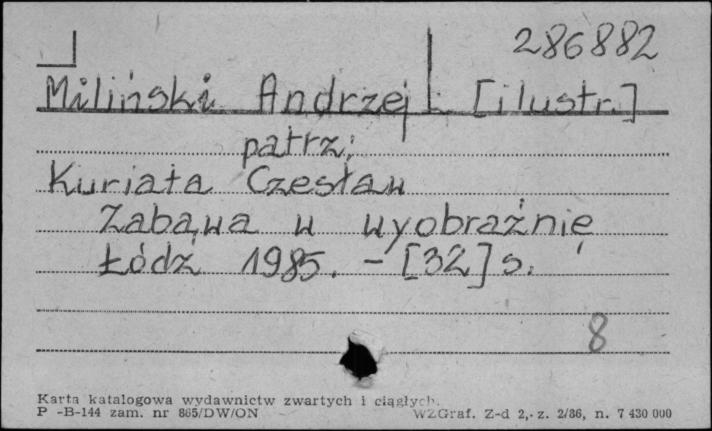 286882
Miliński Andrzej [ilustr.]
patrz:
Kuriata Czesław
Zabawa w wyobraźnię
Łódź 1985. - [32] s.
8
Karta katalogowa wydawnictw zwartych i ciągłych.
P -B-144 zam. nr 865/DW/ON WZGraf. Z-d 2, z. 2/86, n. 7 430 000